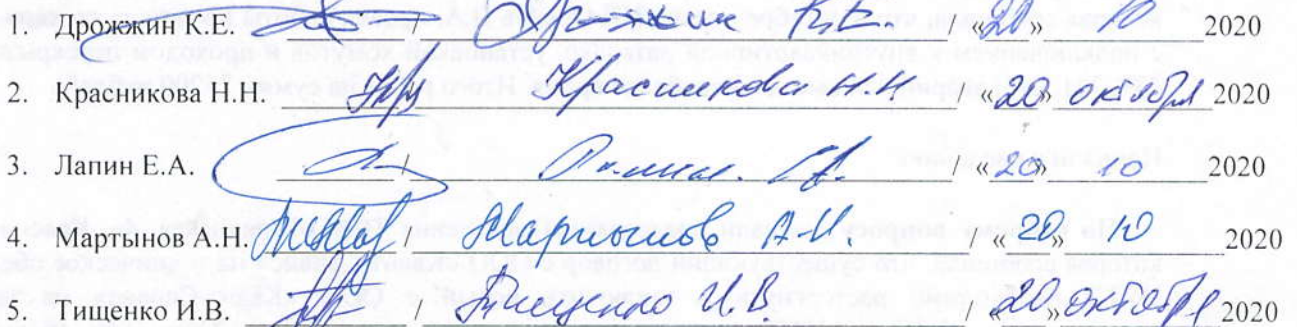 1. Дрожжин К.Е. / Дрожжин К.Е. / «20» 10 2020
2. Красникова Н.Н. / Красникова Н.Н / «20» октября 2020
3. Лапин Е.А. / Лапин Е.А. / «20» 10 2020
4. Мартынов А.Н. / Мартынов А.Н. / «20» 10 2020
5. Тищенко И.В. / Тищенко И.В. / «20» октября 2020